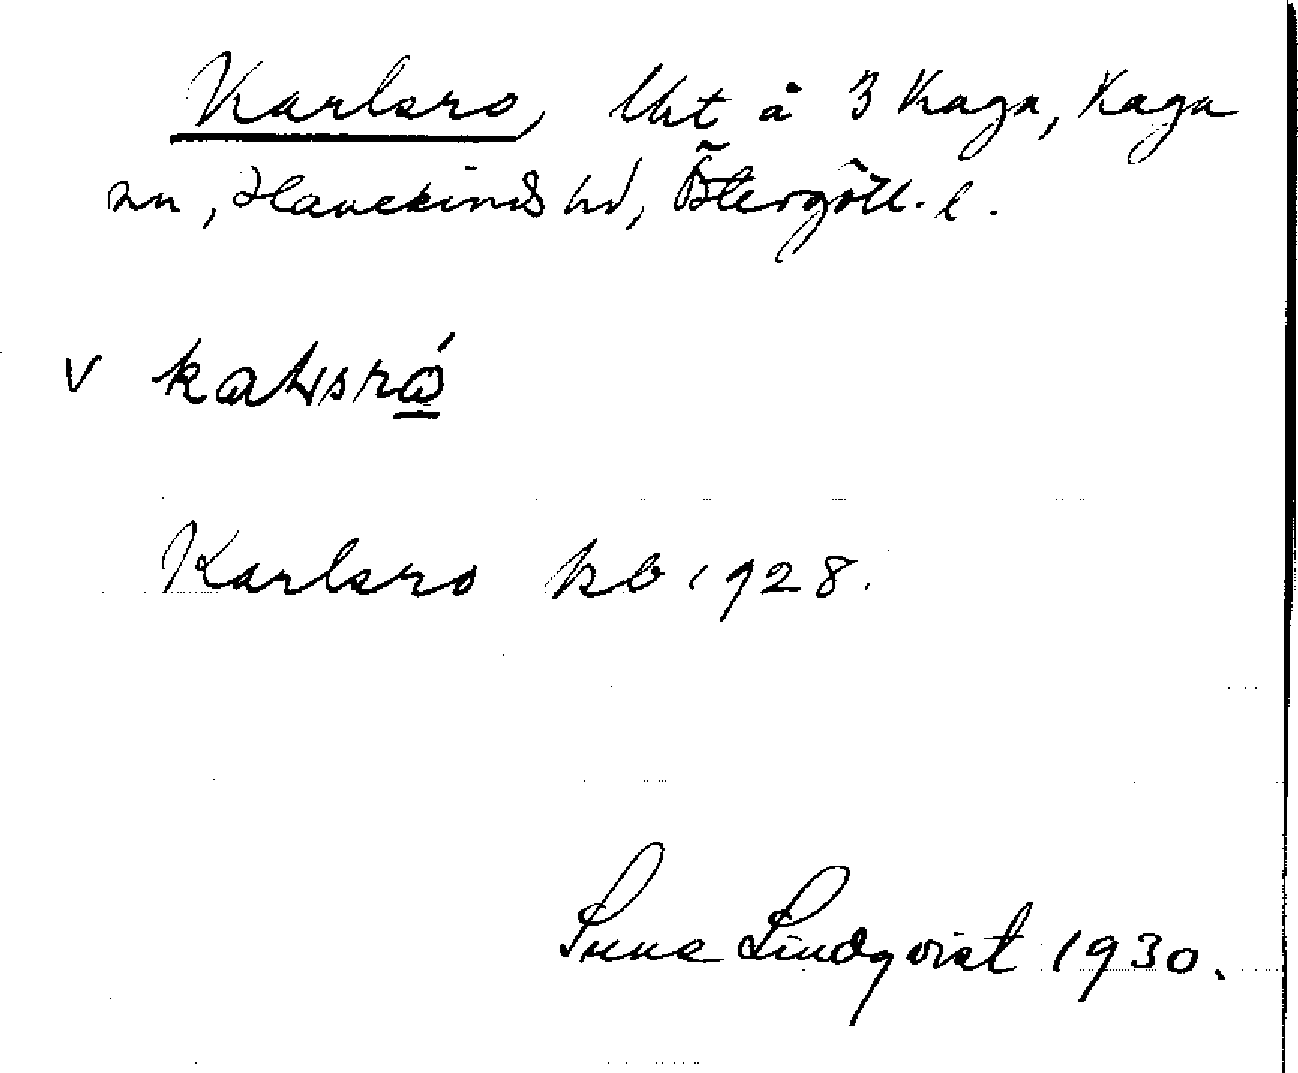 Karlsro, lht å 3 Kaga, Kaga
sn, Hanekinds hd, Östergötl. l.
v kaɭsró
Karlsro kb 1928.
Sune Lindqvist 1930.